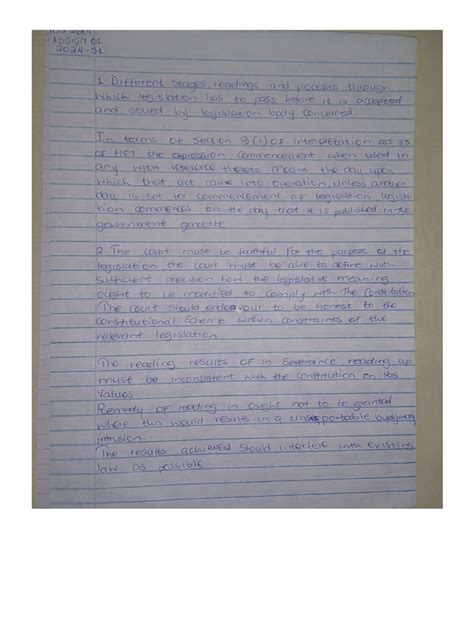 ASSIGN 01
2024-S1
1. Different stages, readings and processes through
which legislation has to pass before it is accepted
and issued by legislation body concerned
In terms of section 3(1) of interpretation act 33
of 1957 the expression commencement when used in
any with reference thereto means the day upon
which that act came into operation, unless another
day is set for commencement of legislation, legisla
tion commences on the day that it is published in the
government gazette
2. The court must be faithful for the purpose of the
legislation the court must be able to define with
sufficient precision how the legislative meaning
ought to be modified to comply with the Constitution
The court should endeavour to be honest to the
Constitutional scheme within constraints of the
relevant legislation.
The reading results of in severance, reading up
must be inconsistent with the constitution on its
values
Remedy of reading in ought not to be granted
where this would results in a budgetary
intrusion.
The results achieved should interfere with existing
law as possible